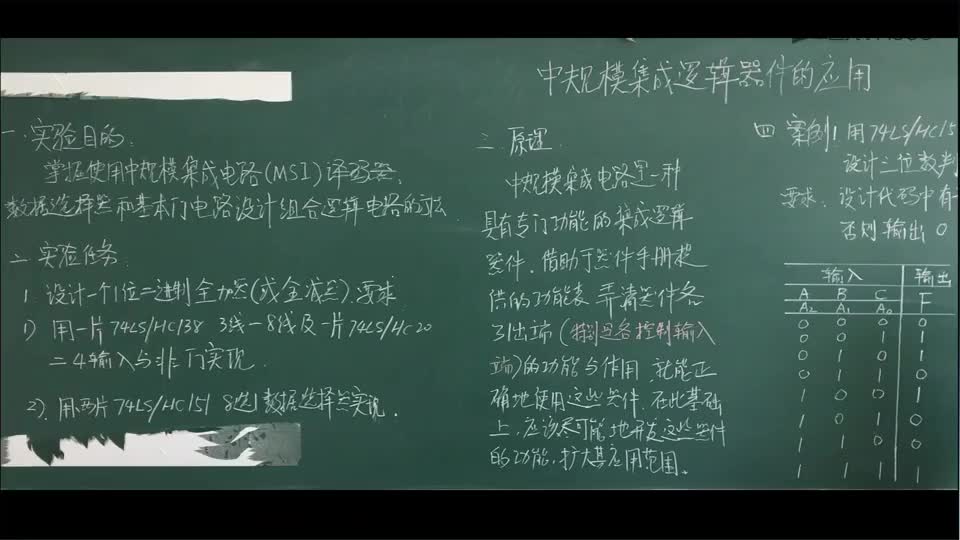 中规模集成逻辑器件的应用
一.实验目的:
掌握使用中规模集成电路(MSI)译码器、
数据选择器和基本门电路设计组合逻辑电路的方法.
二.实验任务:
1.设计一个1位二进制全加器(或全减器).要求
1) 用一片74LS/HC138 3线-8线及一片74LS/HC20
二4输入与非门实现.
2).用两片74LS/HC151 8选1数据选择器实现.
三.原理.
中规模集成电路是一种
具有专门功能的集成逻辑
器件.借助于器件手册提
供的功能表.弄清器件各
引出端(特别是各控制输入
端)的功能与作用.就能正
确地使用这些器件.在此基础
上.应该尽可能地开发这些器件
的功能.扩大其应用范围。
四 案例1.用74LS/HC15
设计三位数判
要求.设计代码中有
否则输出0
输入 输出
A B C F
A2 A1 A0
0 0 0 0
0 0 1 1
0 1 0 1
0 1 1 0
1 0 0 1
1 0 1 0
1 1 0 0
1 1 1 1